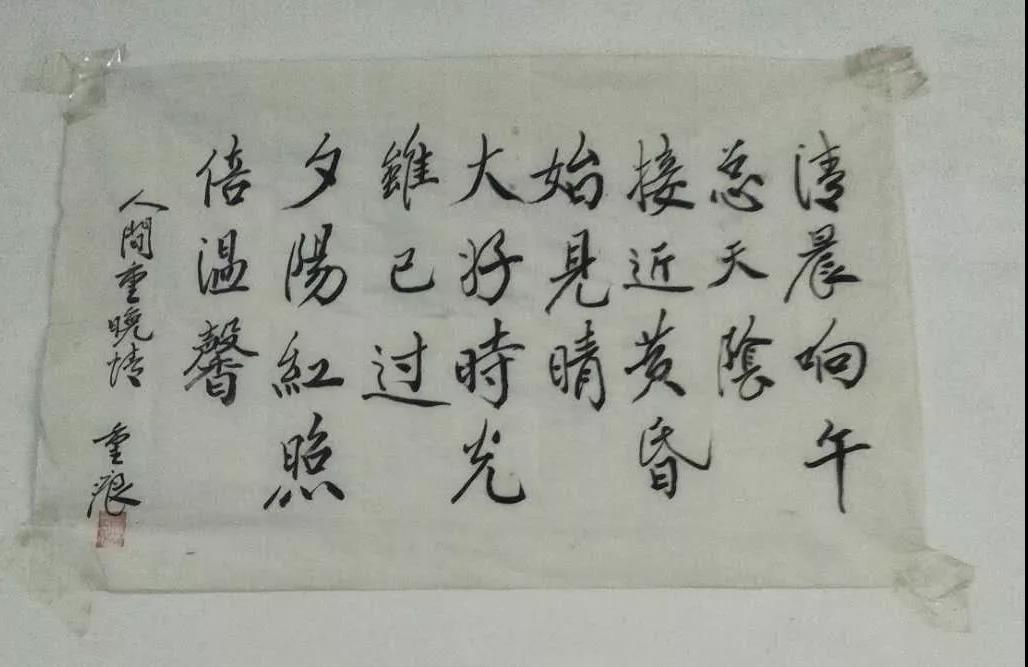 清晨响午
总天陰
接近黄昏
始見晴
大好時光
雖已过
夕陽紅照
倍温馨
人間重晚情
重痕